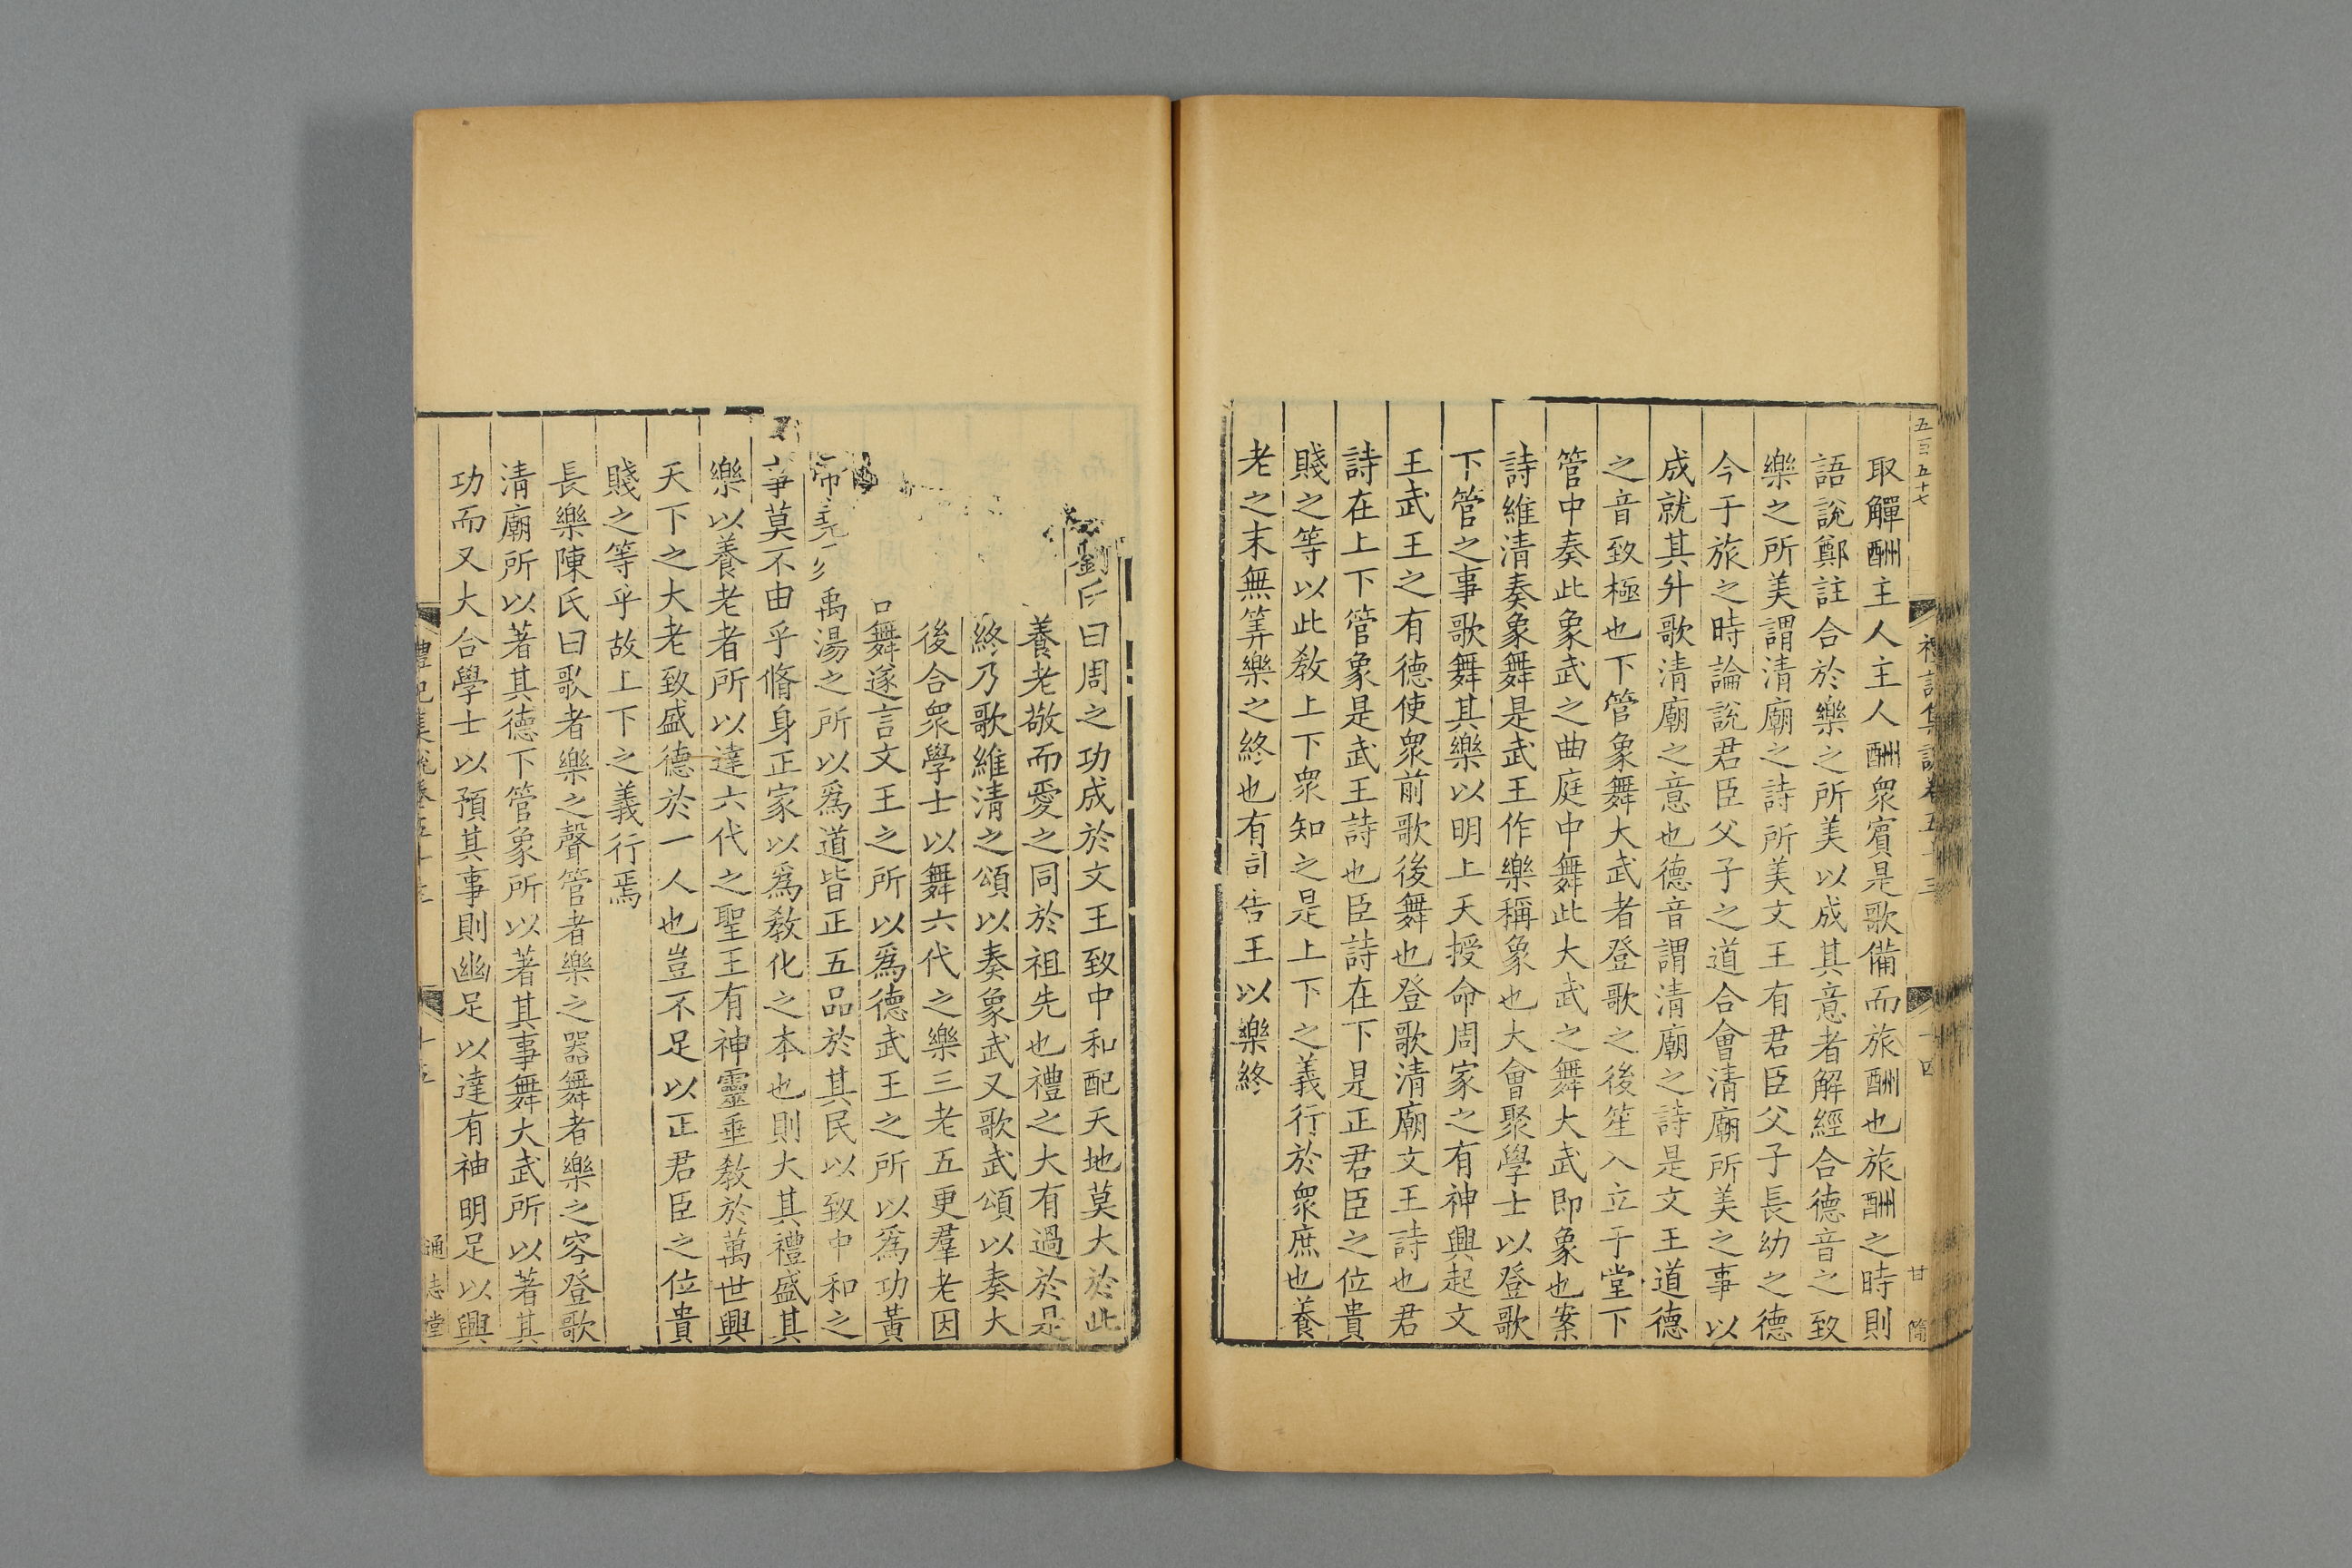 五百五十七
取觶酬主人主人酬衆賓是歌備而旅酬也旅酬之時則
語說鄭註合於樂之所美以成其意者解經合德音之致
樂之所美謂清廟之詩所美文王有君臣父子長幼之德
今于旅之時論說君臣父子之道合會清廟所美之事以
成就其升歌清廟之意也德音謂清廟之詩是文王道德
之音致極也下管象舞大武者登歌之後笙入立于堂下
管中奏此象武之曲庭中舞此大武之舞大武即象也案
詩維清奏象舞是武王作樂稱象也大會聚學士以登歌
下管之事歌舞其樂以明上天授命周家之有神興起文
王武王之有德使衆前歌後舞也登歌清廟文王詩也君
詩在上下管象是武王詩也臣詩在下是正君臣之位貴
賤之等以此敎上下衆知之是上下之義行於衆庶也養
老之末無筭樂之終也有司告王以樂終
劉氏曰周之功成於文王致中和配天地莫大於此
養老敬而愛之同於祖先也禮之大有過於是
終乃歌維清之頌以奏象武又歌武頌以奏大
後合衆學士以舞六代之樂三老五更羣老因
舞遂言文王之所以爲德武王之所以爲功黃
帝堯禹湯之所以爲道皆正五品於其民以致中和之
事莫不由乎脩身正家以爲敎化之本也則大其禮盛其
樂以養老者所以達六代之聖王有神靈垂敎於萬世興
天下之大老致盛德於一人也豈不足以正君臣之位貴
賤之等乎故上下之義行焉
長樂陳氏曰歌者樂之聲管者樂之器舞者樂之容登歌
清廟所以著其德下管象所以著其事舞大武所以著其
功而又大合學士以預其事則幽足以達有神明足以興
禮記集說卷五十三
十五
通志堂